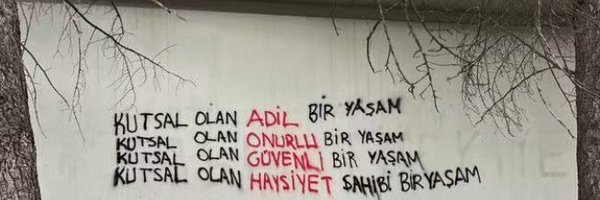 KUTSAL OLAN ADİL BİR YAŞAM
KUTSAL OLAN ONURLU BİR YAŞAM
KUTSAL OLAN GÜVENLİ BİR YAŞAM
KUTSAL OLAN HAYSİYET SAHİBİ BİR YAŞAM